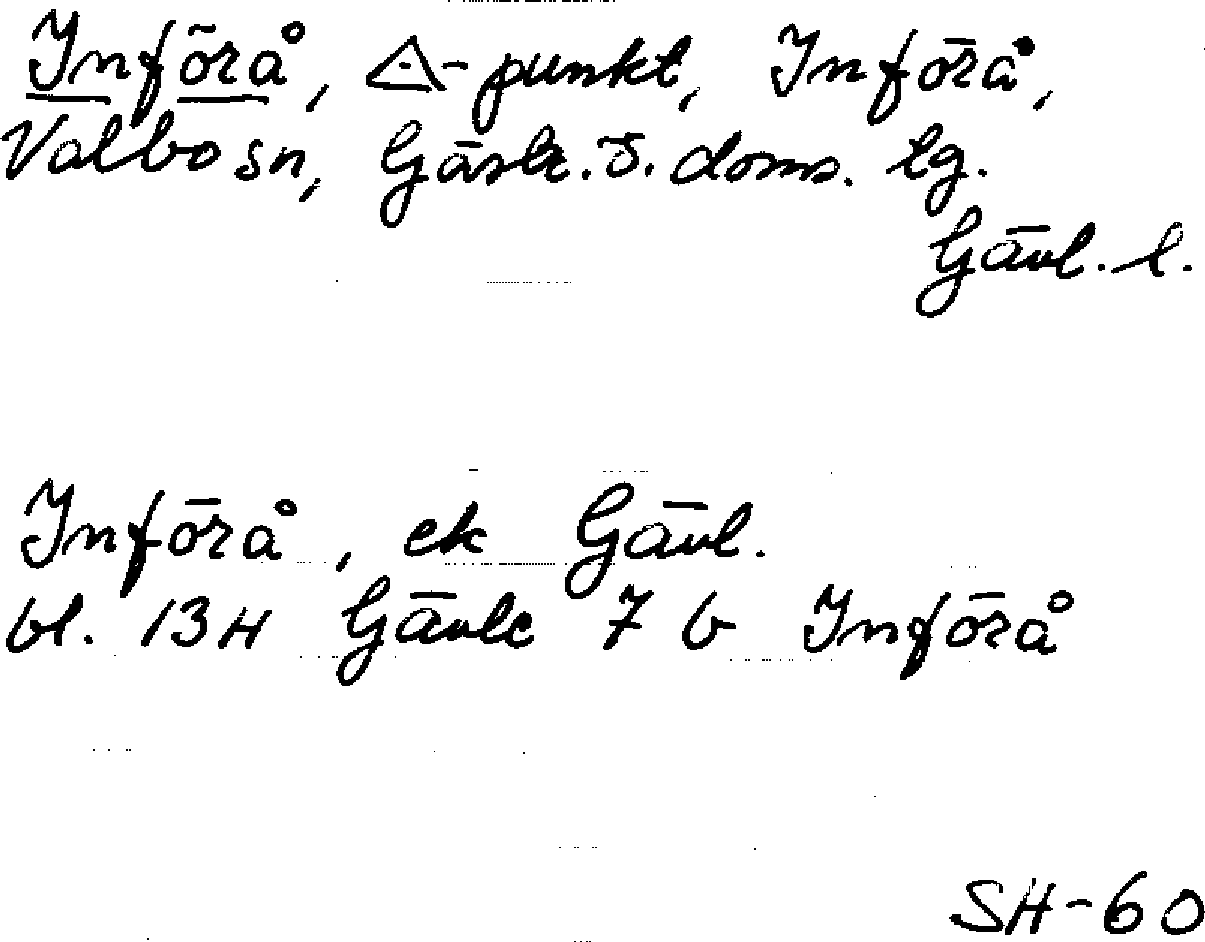 Införa°, △-punkt, Införå,
Valbo sn, Gästr. ö. doms. tg.
Gävl. l.
Införå, ek Gävl.
bl. 13H Gävle 7 b Införå
SH-60